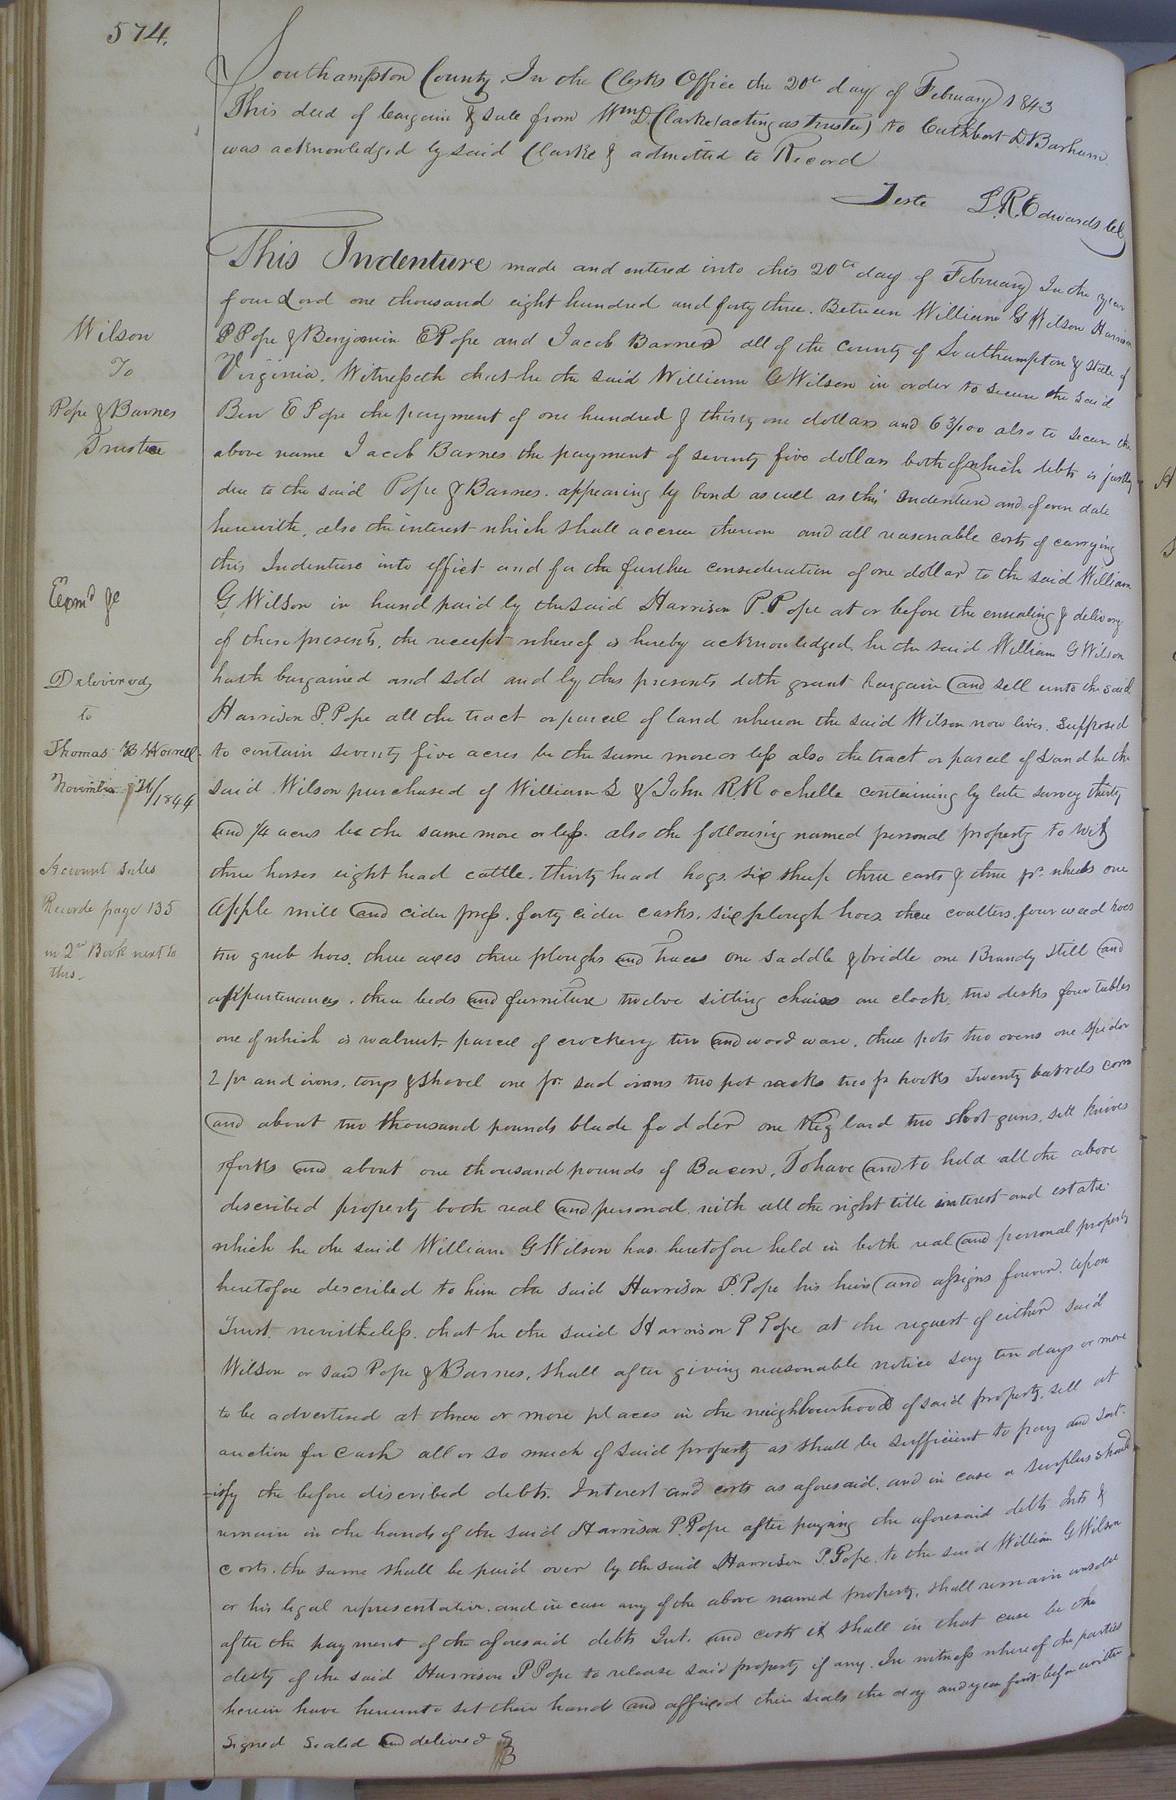 574.
Southampton County. In the Clerks Office the 20th day of February 1843
This deed of bargain & sale from Wm D. Clarke (acting as Trustee) to Cuthbert D. Barham
was acknowledged by said Clarke & admitted to Record
Teste L. R. Edwards
This Indenture made and entered into this 20th day of February In the year
of our Lord one thousand eight hundred and forty three. Between William G Wilson Harrison
P Pope & Benjamin E Pope and Jacob Barnes all of the County of Southampton & State of
Virginia. Witnesseth that he the said William G Wilson in order to secure the said
Ben E Pope the payment of one hundred & thirty one dollars and 63/100 also to secure the
above name Jacob Barnes the payment of seventy five dollars both of which debts is justly
due to the said Pope & Barnes. appearing by bond as well as this Indenture and of even date
herewith, also the interest which shall accrue thereon and all reasonable costs of carrying
this Indenture into effect and for the further consideration of one dollar to the said William
G Wilson in hand paid by the said Harrison P. Pope at or before the ensealing & delivery
of these presents, the receipt whereof is hereby acknowledged, he the said William G Wilson
hath bargained and sold and by this presents doth grant bargain and sell unto the said
Harrison P. Pope all the tract or parcel of land whereon the said Wilson now lives. supposed
to contain seventy five acres be the same more or less also the tract or parcel of Land he the
said Wilson purchased of William L & John R. Rochelle containing by late survey thirty
and 1/4 acres be the same more or less. also the following named personal property to wit
three horses eight head cattle. thirty head hogs. six sheep three carts & three pr. wheels one
Apple mill and cider press. forty cider casks. six plough hoes three coulters. four weed hoes
two grub hoes. three axes three ploughs and Traces one saddle & bridle one Brandy Still and
appurtenances. three beds and furniture twelve sitting chairs one clock. two desks four tables
one of which is walnut. parcel of crockery tin and wood ware. three pots two ovens one spider
2 pr andirons. tongs & shovel one pr sad irons two pot racks two pr hooks Twenty barrels corn
and about two thousand pounds blade fodder one keg lard two shot guns. sett knives
& forks and about one thousand pounds of Bacon, To have and to hold all the above
described property both real and personal with all the right title interest and estate
which he the said William G Wilson has heretofore held in both real and personal property
heretofore described to him the said Harrison P. Pope his heirs and assigns forever. upon
Trust nevertheless. that he the said Harrison P Pope at the request of either said
Wilson or said Pope & Barnes, shall after giving reasonable notice say ten days or more
to be advertised at three or more places in the neighbourhood of said property, sell at
auction for cash all or so much of said property as shall be sufficient to pay and sat-
=isfy the before discribed debts. Interest and costs as aforesaid. and in case a surplus should
remain in the hands of the said Harrison P. Pope after paying the aforesaid debts Ints &
costs. the same shall be paid over by the said Harrison P. Pope. to the said William G Wilson
or his legal representative. and in case any of the above named property, shall remain unsold
after the payment of the aforesaid debts Int. and costs it shall in that case be the
duty of the said Harrison P Pope to release said property if any. In witness whereof the parties
herein have hereunto set their hands and affixed their seals the day and year first before written
Signed Sealed and delivered
Wilson
To
Pope & Barnes
Trustee
Exmd
Delivered
to
Thomas
November 26/1844
Account Sales
Recorde page 135
in 2nd Book next to
this.